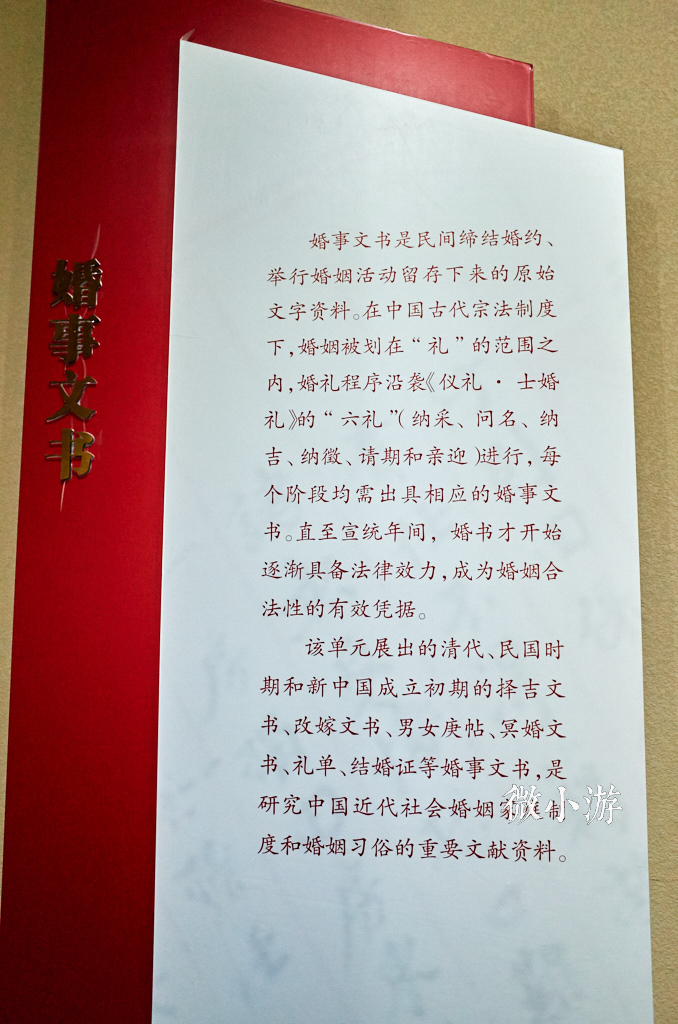 婚事文书
婚事文书是民间缔结婚约、
举行婚姻活动留存下来的原始
文字资料。在中国古代宗法制度
下，婚姻被划在“礼”的范围之
内，婚礼程序沿袭《仪礼·士婚
礼》的“六礼”（纳采、问名、纳
吉、纳徵、请期和亲迎）进行，每
个阶段均需出具相应的婚事文
书。直至宣统年间，婚书才开始
逐渐具备法律效力，成为婚姻合
法性的有效凭据。
该单元展出的清代、民国时
期和新中国成立初期的择吉文
书、改嫁文书、男女庚帖、冥婚文
书、礼单、结婚证等婚事文书，是
研究中国近代社会婚姻家庭制
度和婚姻习俗的重要文献资料。
微小游